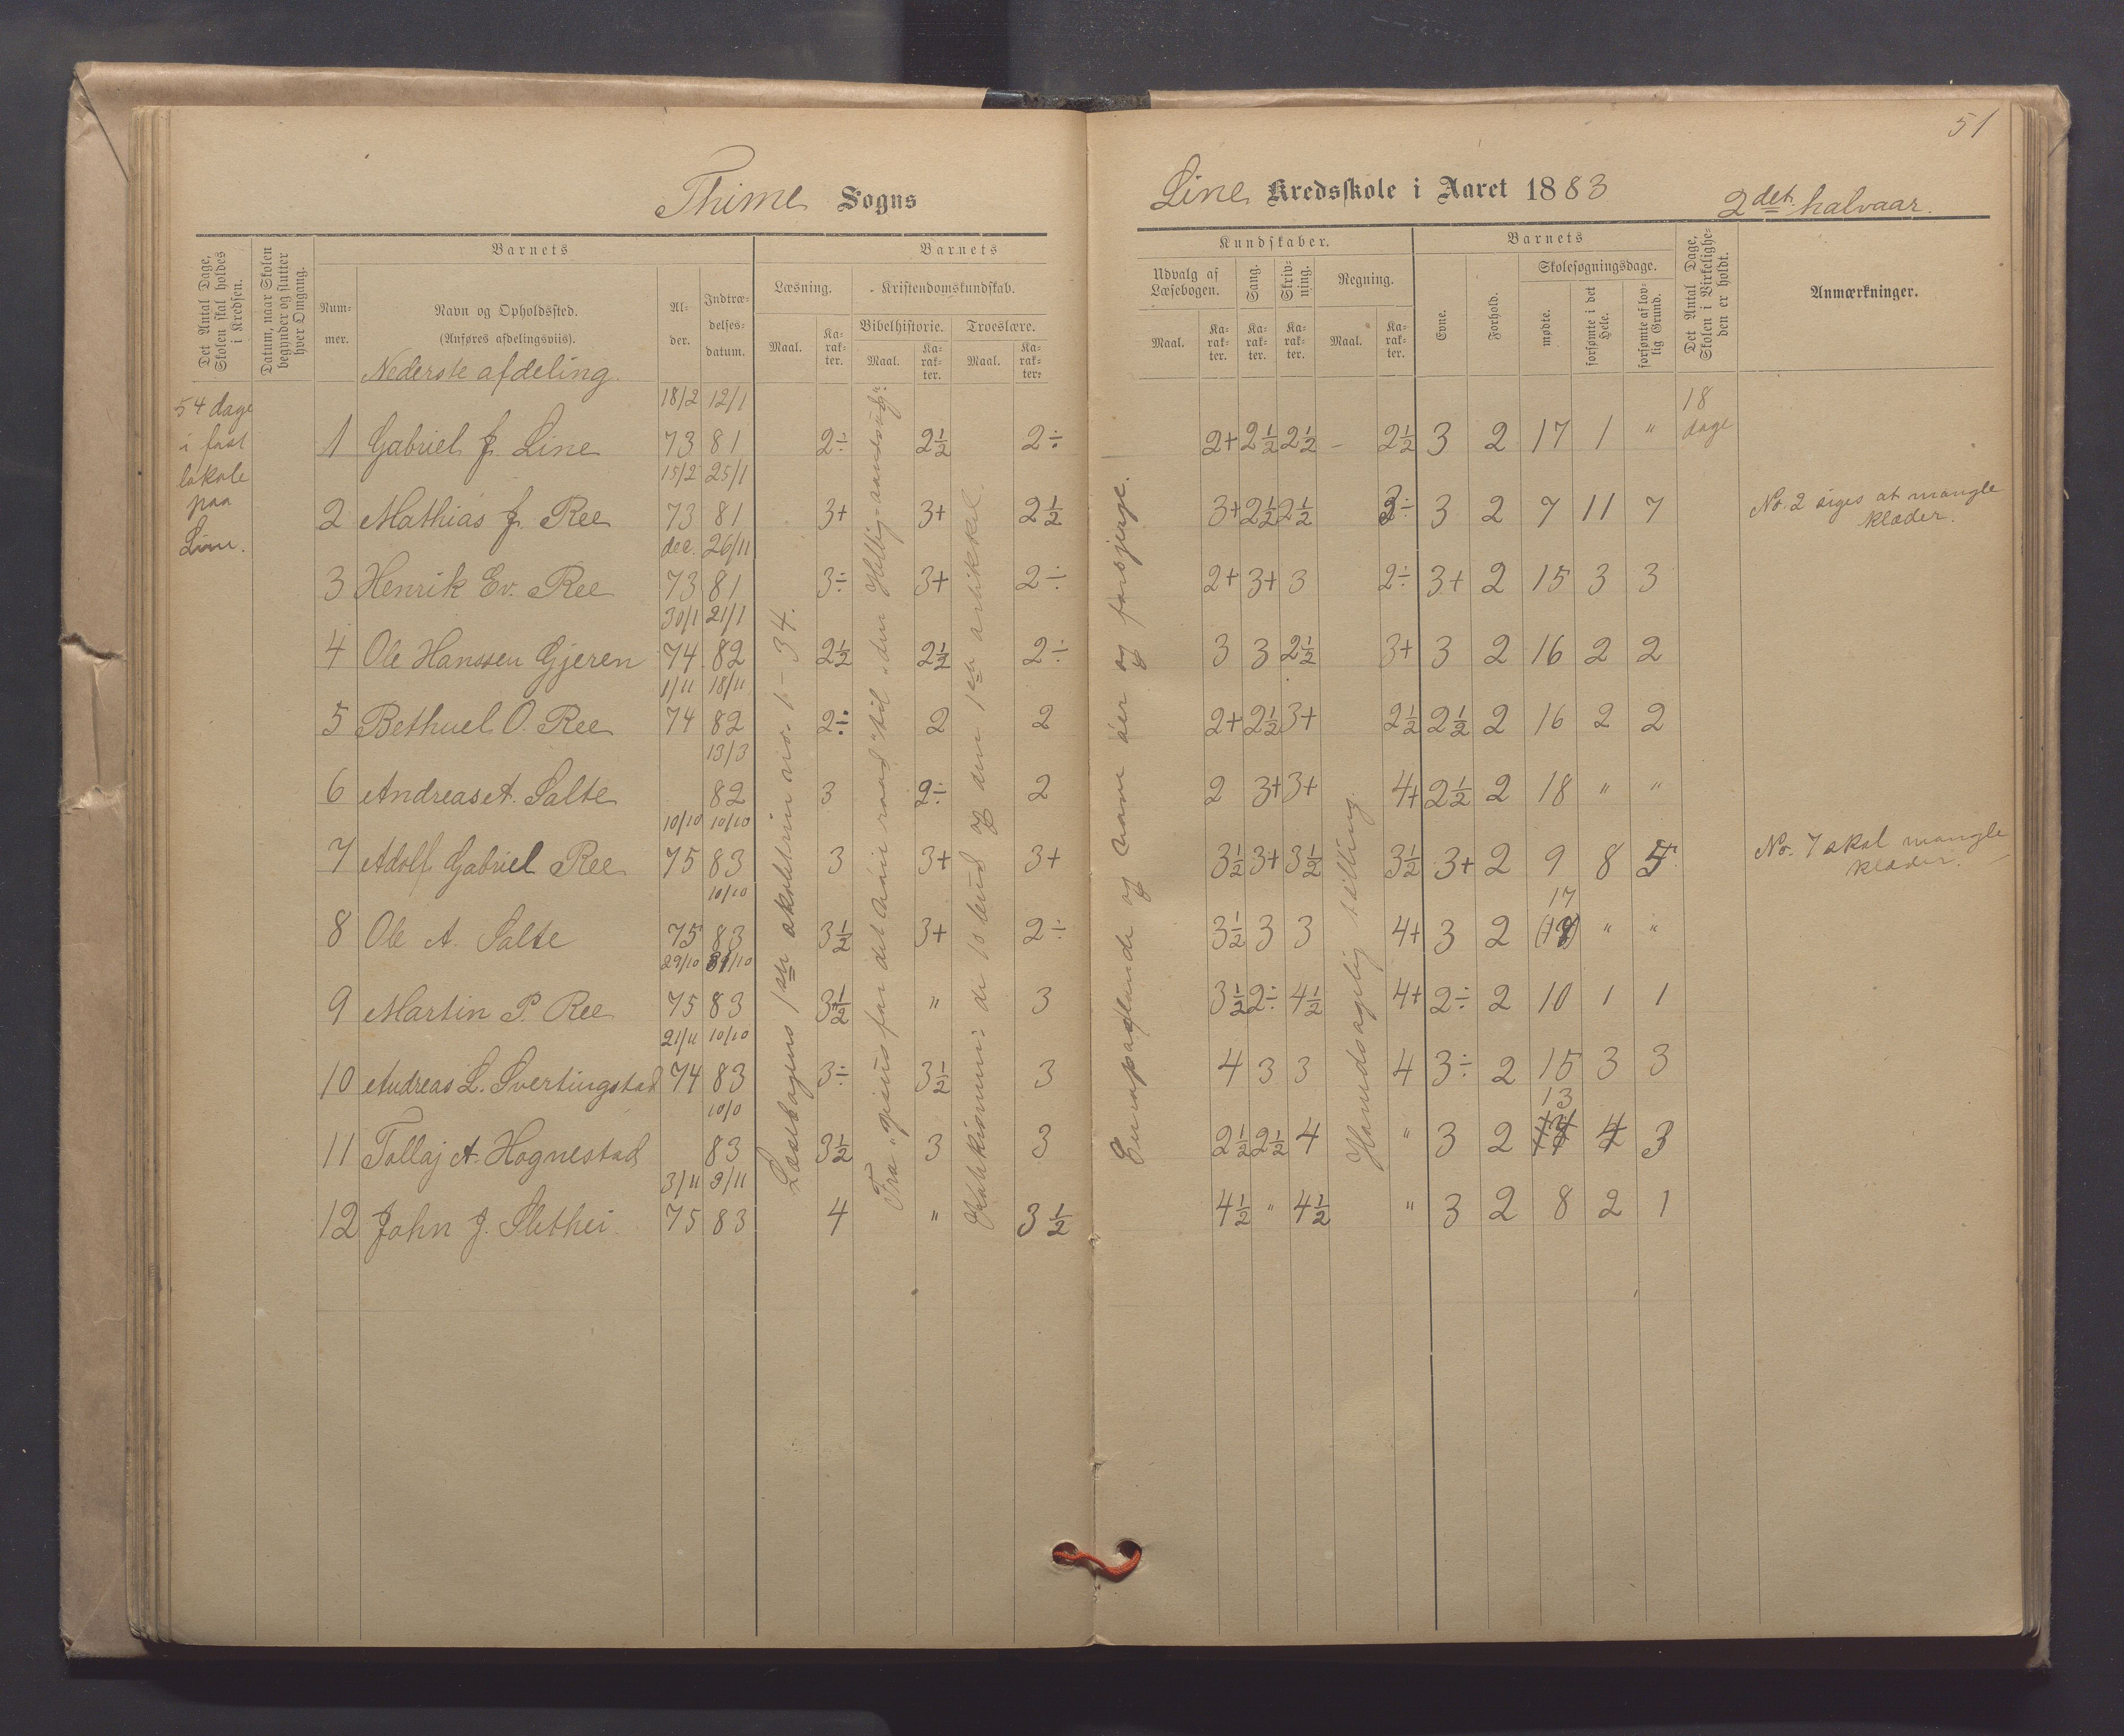 51
Thime Sogns
Line Kredsskole i Aaret 1883
2det halvaar.
Det Antal Dage, Skolen skal holdes i Kredsen.
Datum, naar Skolen begynder og slutter hver Omgang.
Barnets
Num-mer.
Navn og Opholdssted.
(Anføres afdelingsviis).
Al-der.
Indtræ-delses-datum.
Barnets
Læsning.
Maal.
Ka-rak-ter.
Kristendomskundskab.
Bibelhistorie.
Maal.
Ka-rak-ter.
Troeslære.
Maal.
Ka-rak-ter.
Kundskaber.
Udvalg af Læsebogen.
Maal.
Ka-rak-ter.
Sang.
Ka-rak-ter.
Skriv-ning.
Ka-rak-ter.
Regning.
Maal.
Ka-rak-ter.
Barnets
Evne.
Forhold.
Skolesøgningsdage.
mødte.
forsømte i det Hele.
forsømte af lov-lig Grund.
Det Antal Dage, Skolen i Virkelighe-den er holdt.
Anmærkninger.
Nederste afdeling
54 dage
i fast
lokale
paa
Line.
18 dage
18/2 12/1
1 Gabriel J. Line 73 81 2÷ 2½ 2÷ 2+ 2½ 2½ – 2½ 3 2 17 1 "
15/2 25/1
2 Mathias J. Ree 73 81 3+ 3+ 2½ 3+ 2½ 2½ 3÷ 3 2 7 11 7 No. 2 siges at mangle klæder.
dec. 26/11
3 Henrik Ev. Ree 73 81 3÷ 3+ 2÷ 2+ 3+ 3 2÷ 3+ 2 15 3 3
30/1 21/1
4 Ole Hanssen Gjeren 74 82 2½ 2½ 2÷ 3 3 2½ 3+ 3 2 16 2 2
1/11 18/11
5 Bethuel O. Ree 74 82 2÷ 2 2 2+ 2½ 3+ 2½ 2½ 2 16 2 2
13/3
6 Andreas A. Salte 82 3 2÷ 2 2 3+ 3+ 4+ 2½ 2 18 " "
10/10 10/10
7 Adolf Gabriel Ree 75 83 3 3+ 3+ 3½ 3+ 3½ 3½ 3+ 2 9 8 5 No. 7 skal mangle klæder.
10/10
17
8 Ole A. Salte 75 83 3½ 3+ 2÷ 3½ 3 3 4+ 3 2 " "
29/10 31/10
9 Martin P. Ree 75 83 3½ " 3 3½ 2÷ 4½ 4+ 2÷ 2 10 1 1
21/11 10/10
10 Andreas L. Svertingstad 74 83 3÷ 3½ 3 4 3 3 4 3÷ 2 15 3 3
10/0
13
11 Tollaj A. Hognestad 83 3½ 3 3 2½ 2½ 4 " 3 2 4 3
3/11 9/11
12 John J. Slethei 75 83 4 " 3½ 4½ " 4½ " 3 2 8 2 1
Læsebogens 1ste skoletrin nr. 1–34.
Fra "Jesus for det høie raad" til "den Hellig-aands udg."
Katekismus: de 10 bud og den 1ste artikkel.
og nogen
Mundtlig tælling.